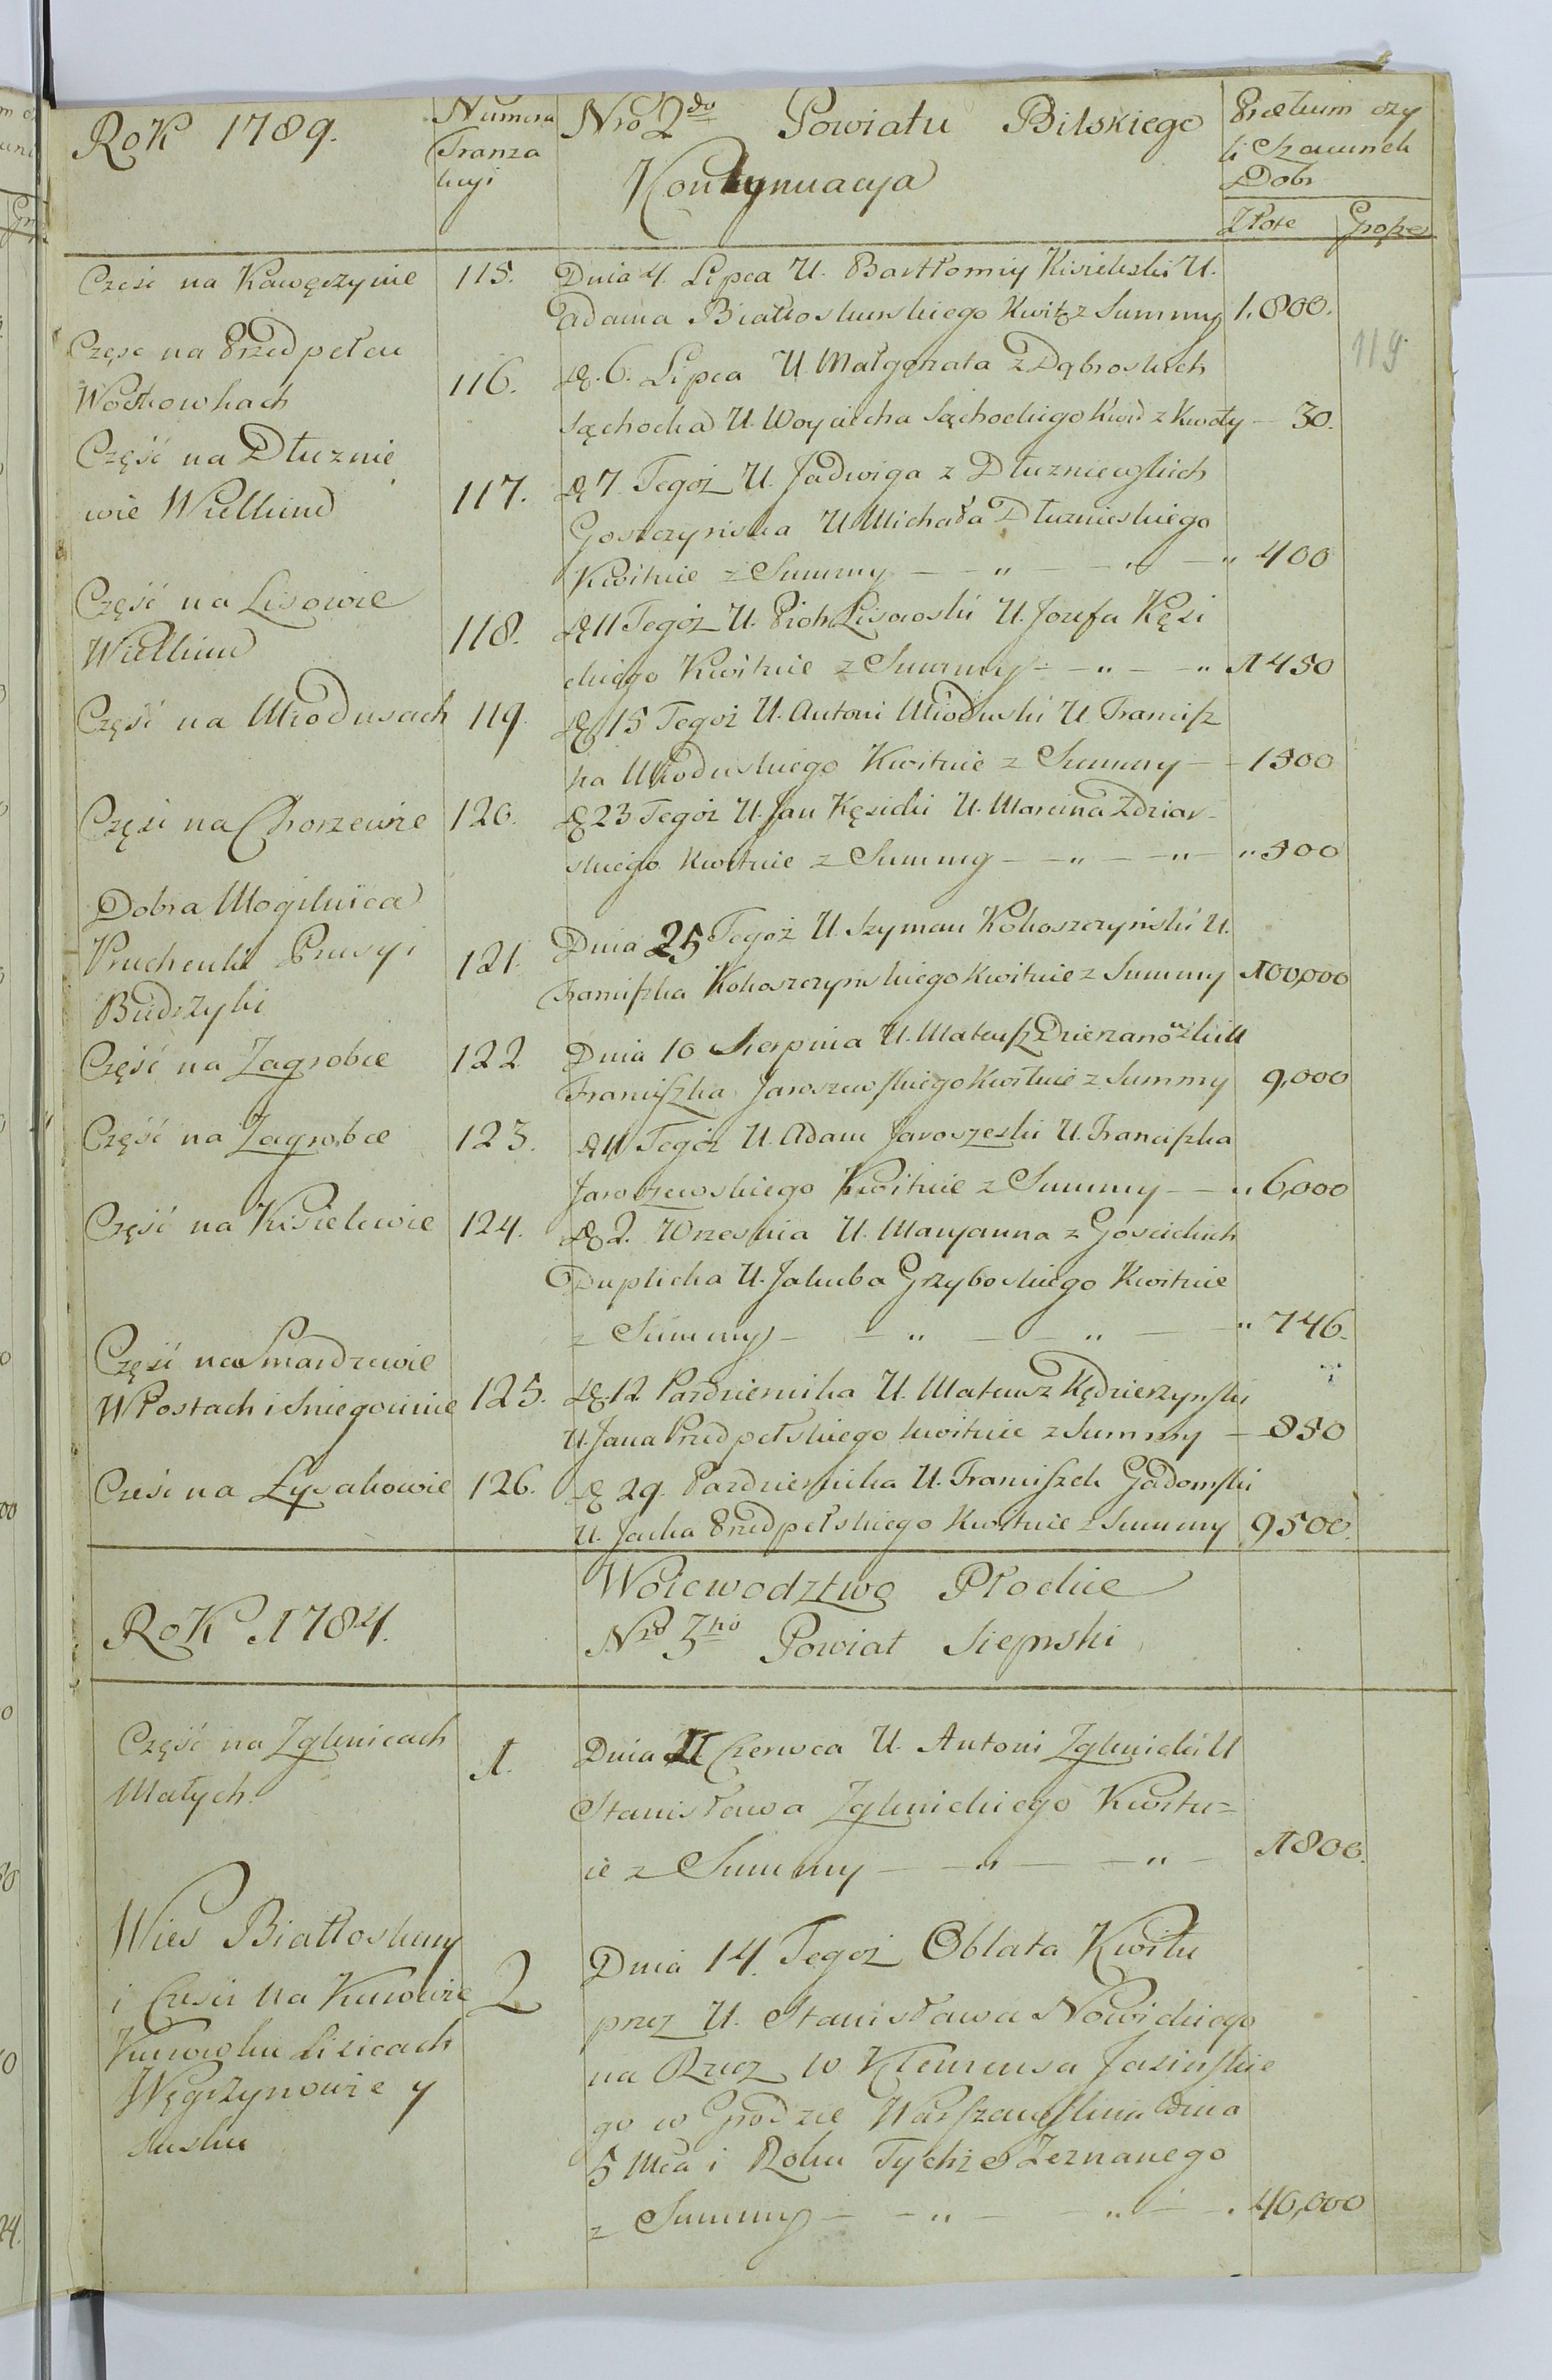 Rok 1789.
Numera
Tranza
kcyi
Nro 2do Powiatu Bilskiego
Kontynuacya
Prætium czy
li Szacunek
Dobr
Złote Grosze
119
Czesc na Kawęczynie 115. Dnia 4. Lipca U. Bartłomiy Kisieleski U.
Adama Białłoskurskiego Kwit. z Summy 1,800.
Częsc na Przedpełcu
Wotkowkach
116. D. 6. Lipca U. Małgorzata z Dąbroskich
Sąchocka U. Woyciecha Sąchockiego Kwit z Kwoty 30.
Część na Dłuznie
wie Wielkim
117. D 7 Tegoż U. Jadwiga z Dłuzniewskich
Goszczyńska U Michała Dłuznieskiego
Kwituie z Summy — „ — „ — „ 400
Część na Lisowie
Wielkim
118. D 11 Tegoż U. Piotr Lisowski U. Jozefa Kęsi
ckiego Kwituie z Summy — „ — „ 1450
Część na Miodusach 119. D 15 Tegoż U. Antoni Mioduski U Francisz
ka Mioduskiego Kwituie z Summy — 1500
Częsć na Chorzewie 120. D 23 Tegoż U. Jan Kęsicki U. Marcina Zdziar-
skiego Kwituie z Summy — „ — „ — „ 500
Dobra Mogilnica
Kruchenki Prusy i
Budzyki
121. Dnia 25 Tegoż U. Szyman Kokoszczyński U.
Franciszka Kokoszczynskiego Kwituie z Summy 100,000
Część na Zagrobie 122 Dnia 10 Sierpnia U. Mateusz Dzierzanowski U
Franciszka Jaroszewskiego Kwituie z Summy 9,000
Część na Zagrobie 123. D 11 Tegoż U. Adam Jaroszeski U. Franciszka
Jaroszewskiego Kwituie z Summy — „ 6,000
Część na Kisielewie 124. D 2. Wrzesnia U. Maryanna z Gościckich
Duplicka U. Jakuba Grzyboskiego Kwituie
z Summy — „ — „ — „ 746.
Część na Smardzewie
Wrostach i Sniegocinie
125. D. 12 Pazdziernika U. Mateusz Kędzierzynski
U. Jana Przedpełskiego kwituie z Summy — 850
Czesc na Łysakowie 126. D 29. Pazdziernika U. Franciszek Gadomski
U. Jacka Przedpełskiego Kwituie z Summy 9500.
Rok 1784.
Woiewodztwo Płockie
Nro 3tio Powiat Sierpski
Część na Zglenicach
Małych.
1. Dnia 11 Czerwca U. Antoni Zglenicki U
Stanisława Zglenickiego Kwitu=
ie z Summy — „ — „ — 1800.
Wies Białłoskury
i Czesci na Kurowie
Kurowku Lisicach
Węgrzynowie y
2 Dnia 14. Tegoż Oblata Kwitu
przez U. Stanisława Nowickiego
na Rzecz W Klemensa Jasinskie
go w Grodzie Warszawskim dnia
5 Mca i Roku Tychże Zeznanego
z Summy — „ — „ — 40,000